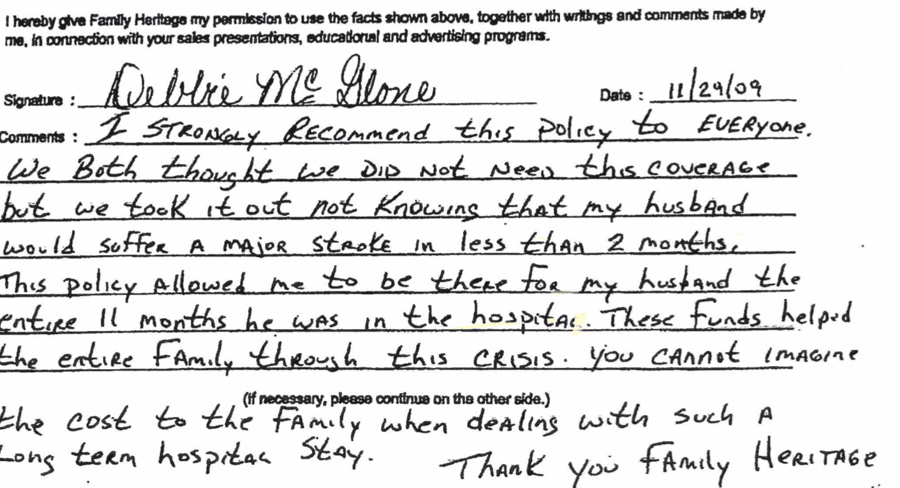 I hereby give Family Heritage my permission to use the facts shown above, together with writings and comments made by
me, in connection with your sales presentations, educational and advertising programs.
Signature : Debbie McGlone Date : 11/29/09
Comments : I STRONGLY RECOMMEND this policy to EVERYONE.
We Both thought we DID NOT NEED this COVERAGE
but we took it out not KNOWING that my husband
would suffer A MAJOR STROKE IN less than 2 months.
This policy Allowed me to be there FOR my husband the
entire 11 months he was in the hospital. These Funds helped
the entire Family through this CRISIS. you CANNOT IMAGINE
(If necessary, please continue on the other side.)
the cost to the FAMily when deALing with such A
Long term hospital Stay. THANK you FAMily HERITAGE